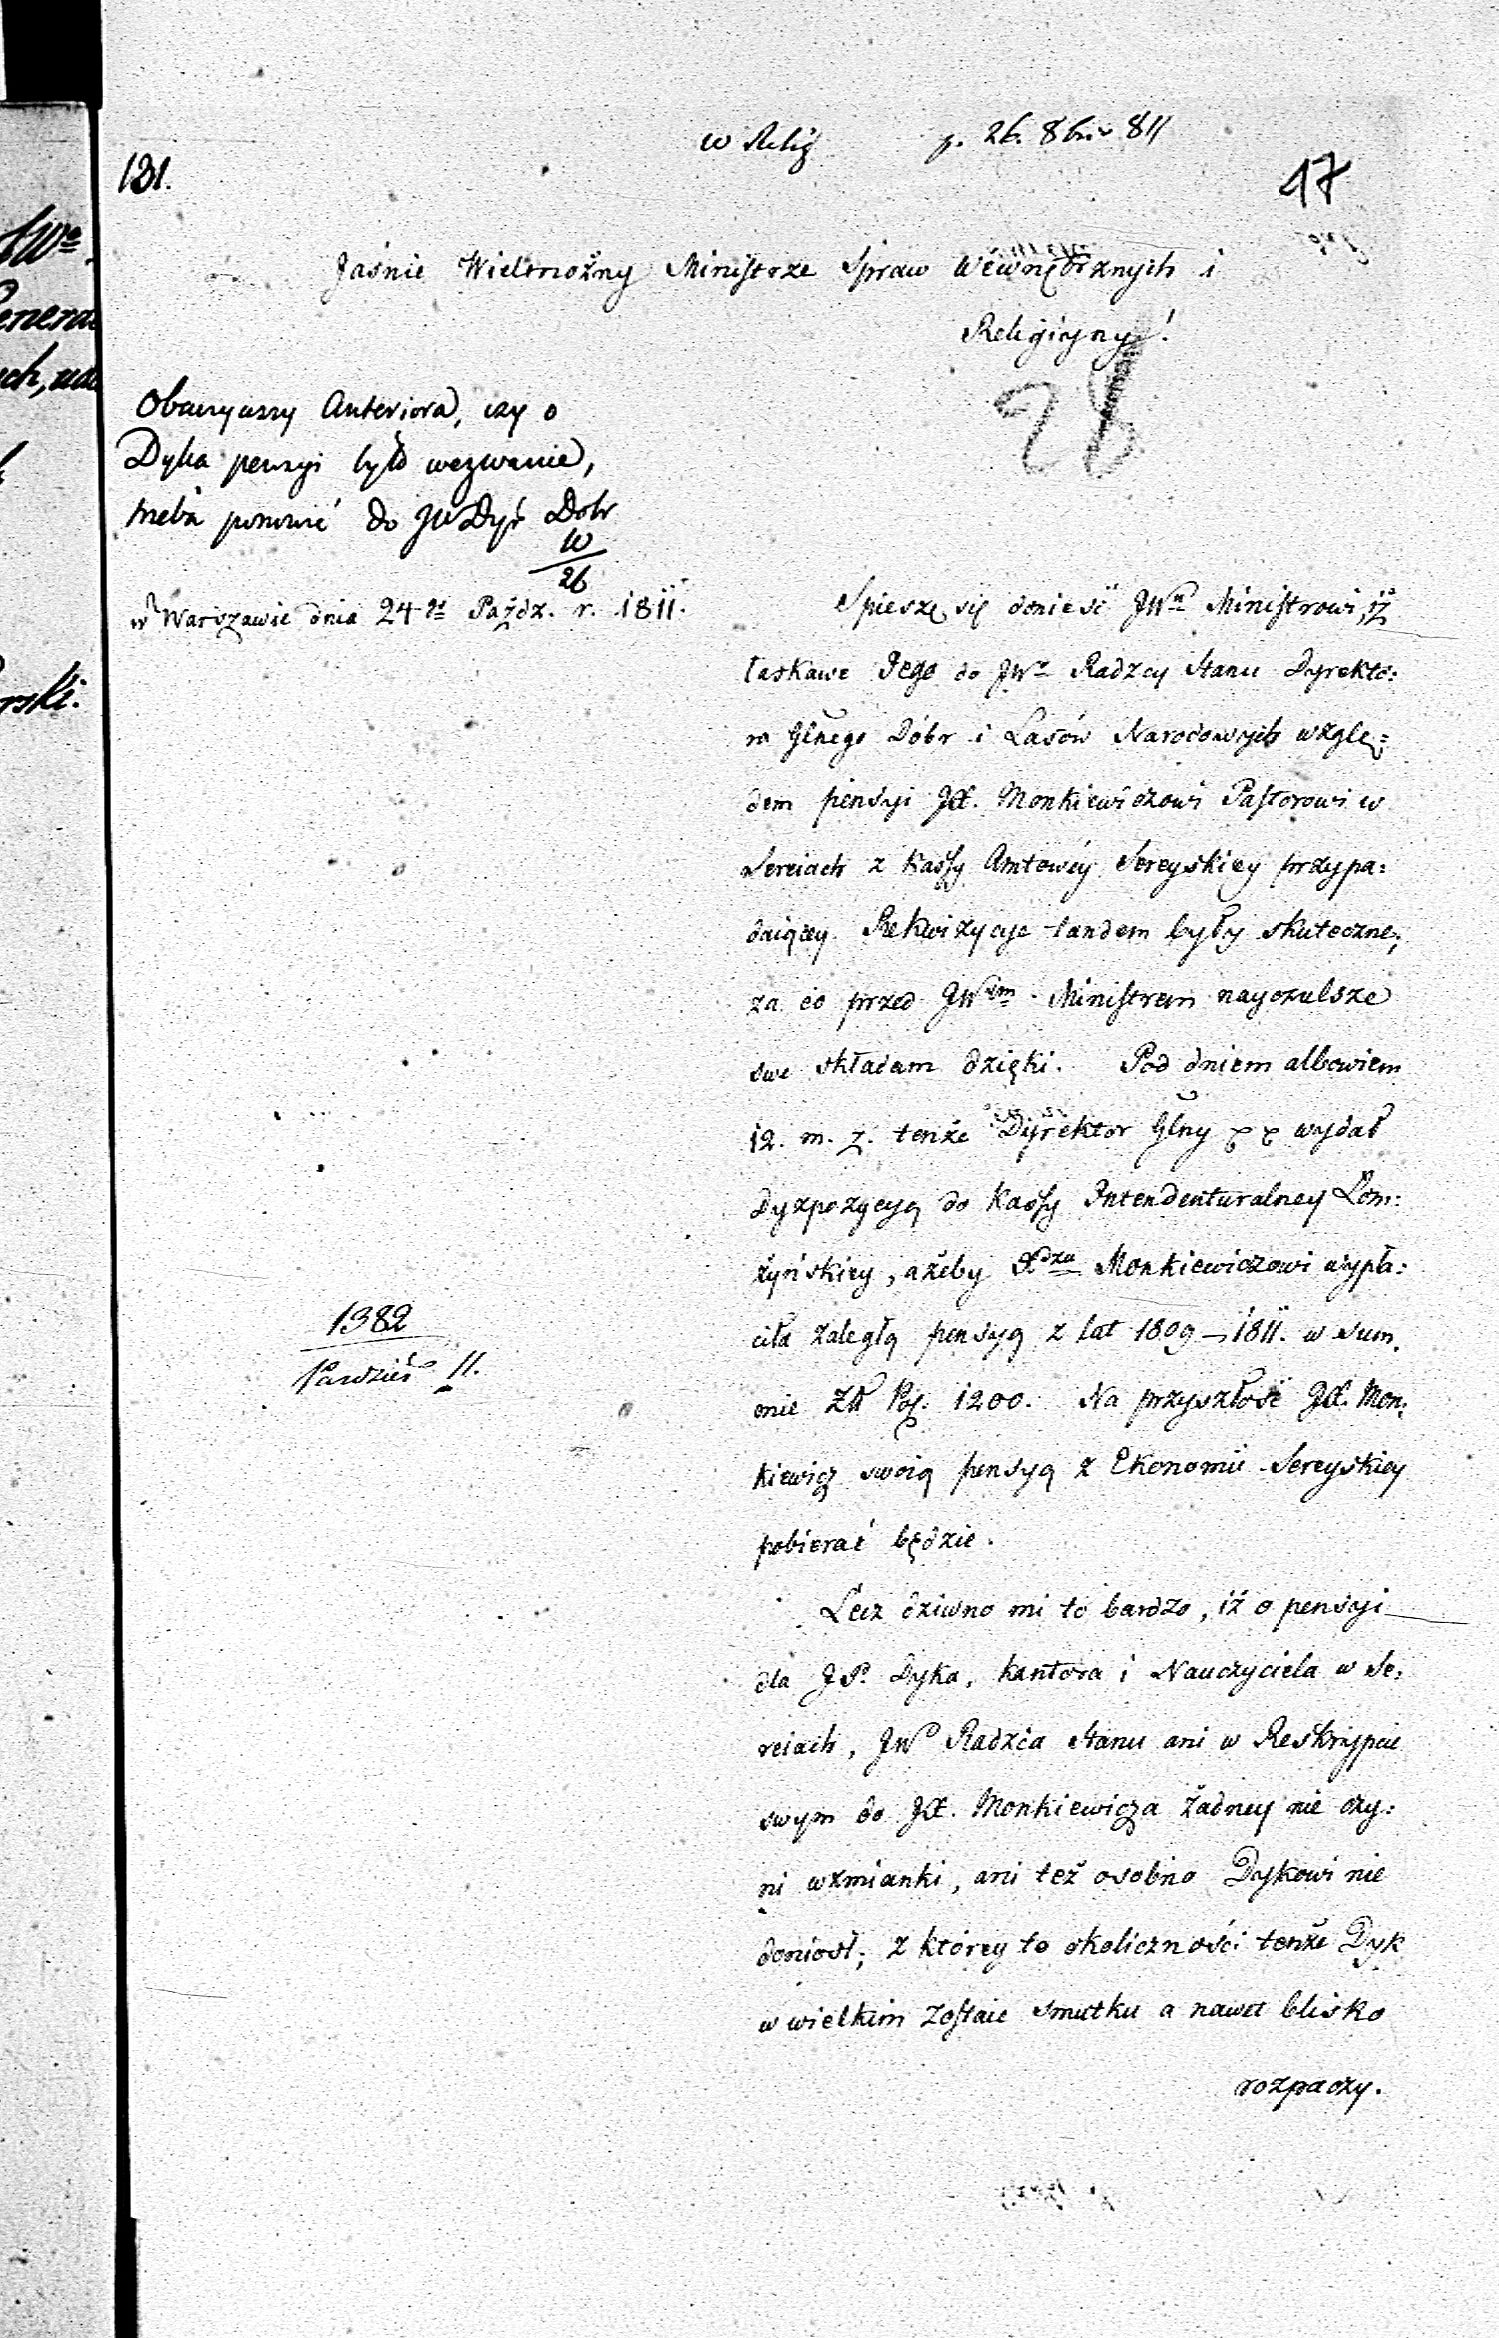 w Relig p. 26. 8br 811
131.
17
Jaśnie Wielmożny Ministrze Spraw Wewnętrznych i
Religiiny!
28
Obaczywszy Anteriora, czy o
Dyka pensyi było wezwanie,
trzeba ponowić do JW Dyr Dobr
W
26
w Warszawie dnia 24 Paźdz. r. 1811.
Spieszę się donieść JWu Ministrowi, iż
łaskawe Jego do JWo Radzcy Stanu Dyrekto:
ra Glnego Dóbr i Lasów Narodowych wzglę:
dem pensyi JX. Monkiewiczowi Pastorowi w
Sereiach z kassy Amtowéy Sereyskiey przypa:
daiącey Rekwizycye tandem były skuteczne,
za co przed JWym Ministrem nayczulsze
swe składam dzięki. Pod dniem albowiem
12. m. z. tenże Dyrektor Glny wydał
dyzpozycyą do kassy Intendenturalney Łom:
żyńskiey, ażeby Xdzu Monkiewiczowi wypła:
ciła zaległą pensyą z lat 1809–1811. w sum,
mie Złł Pol. 1200. Na przyszłość JX. Mon,
kiewicz swoią pensyą z Ekonomii Sereyskiey
pobierać będzie.
1382
Pazdzier 11.
Lecz dziwno mi to bardzo, iż o pensyi
dla JP. Dyka, kantora i Nauczyciela w Se,
reiach, JW Radzca Stanu ani w Reskrypcie
swym do JX. Monkiewicza żadney nie czy:
ni wzmianki, ani też osobno Dykowi nie
doniosł; z którey to okoliczności tenże Dyk
w wielkim zostaie smutku a nawet blisko
rozpaczy.